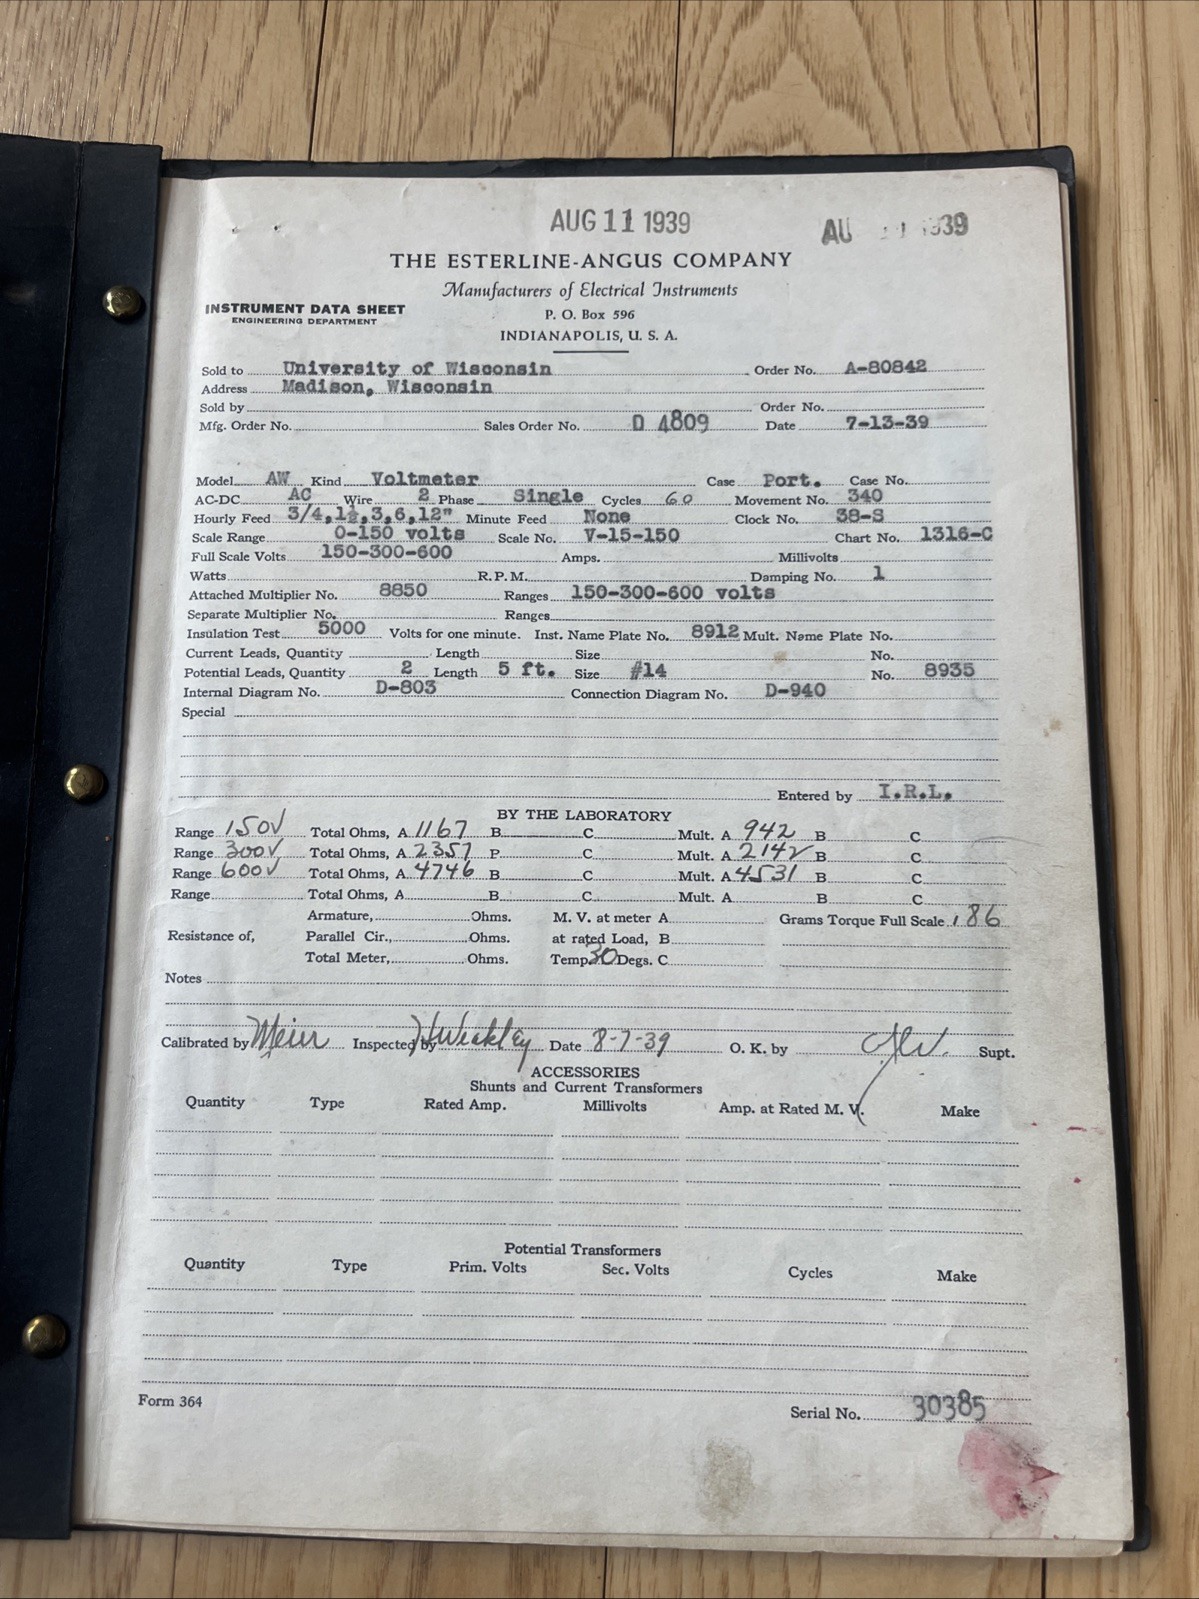 AUG 11 1939 AU 1939
THE ESTERLINE-ANGUS COMPANY
Manufacturers of Electrical Instruments
INSTRUMENT DATA SHEET
ENGINEERING DEPARTMENT
P. O. Box 596
INDIANAPOLIS, U. S. A.
Sold to University of Wisconsin Order No. A-80842
Address Madison, Wisconsin
Sold by Order No.
Mfg. Order No. Sales Order No. D 4809 Date 7-13-39
Model AW Kind Voltmeter Case Port. Case No.
AC-DC AC Wire 2 Phase Single Cycles 60 Movement No. 340
Hourly Feed 3/4,1½,3,6,12" Minute Feed None Clock No. 38-S
Scale Range 0-150 volts Scale No. V-15-150 Chart No. 1316-C
Full Scale Volts 150-300-600 Amps. Millivolts
Watts R.P.M. Damping No. 1
Attached Multiplier No. 8850 Ranges 150-300-600 volts
Separate Multiplier No. Ranges
Insulation Test 5000 Volts for one minute. Inst. Name Plate No. 8912 Mult. Name Plate No.
Current Leads, Quantity Length Size No.
Potential Leads, Quantity 2 Length 5 ft. Size #14 No. 8935
Internal Diagram No. D-803 Connection Diagram No. D-940
Special
Entered by I.R.L.
BY THE LABORATORY
Range 150V Total Ohms, A 1167 B C Mult. A 942 B C
Range 300V Total Ohms, A 2357 B C Mult. A 2142 B C
Range 600V Total Ohms, A 4746 B C Mult. A 4531 B C
Range Total Ohms, A B C Mult. A B C
Armature, Ohms. M. V. at meter A Grams Torque Full Scale .186
Resistance of, Parallel Cir., Ohms. at rated Load, B
Total Meter, Ohms. Temp. 30 Degs. C
Notes
Calibrated by Meir Inspected by Weakley Date 8-7-39 O. K. by Supt.
ACCESSORIES
Shunts and Current Transformers
Quantity Type Rated Amp. Millivolts Amp. at Rated M. V. Make
Potential Transformers
Quantity Type Prim. Volts Sec. Volts Cycles Make
Form 364
Serial No. 30385